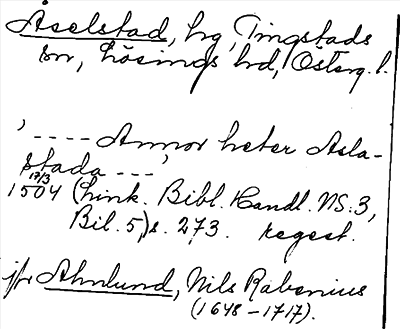 Åselstad, hg, Tingstads
sn, Lösings hd, Österg. l.
'---- Annor heter Asla-
stada ---'
17/3
1504 (Link. Bibl. Handl. NS. 3,
Bil. 5,) s. 273. regest.
jfr Ahnlund, Nils Rabenius
(1648-1717).